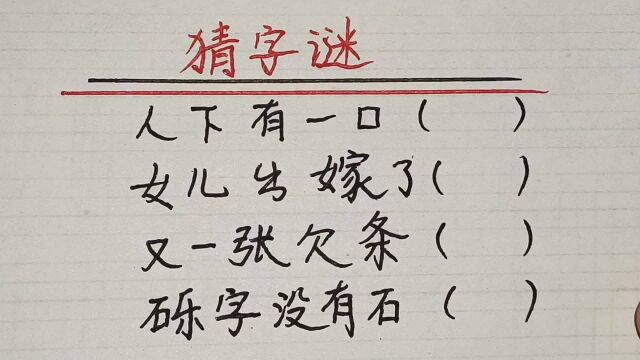 猜字谜
人下有一口（ ）
女儿出嫁了（ ）
又一张欠条（ ）
砾字没有石（ ）